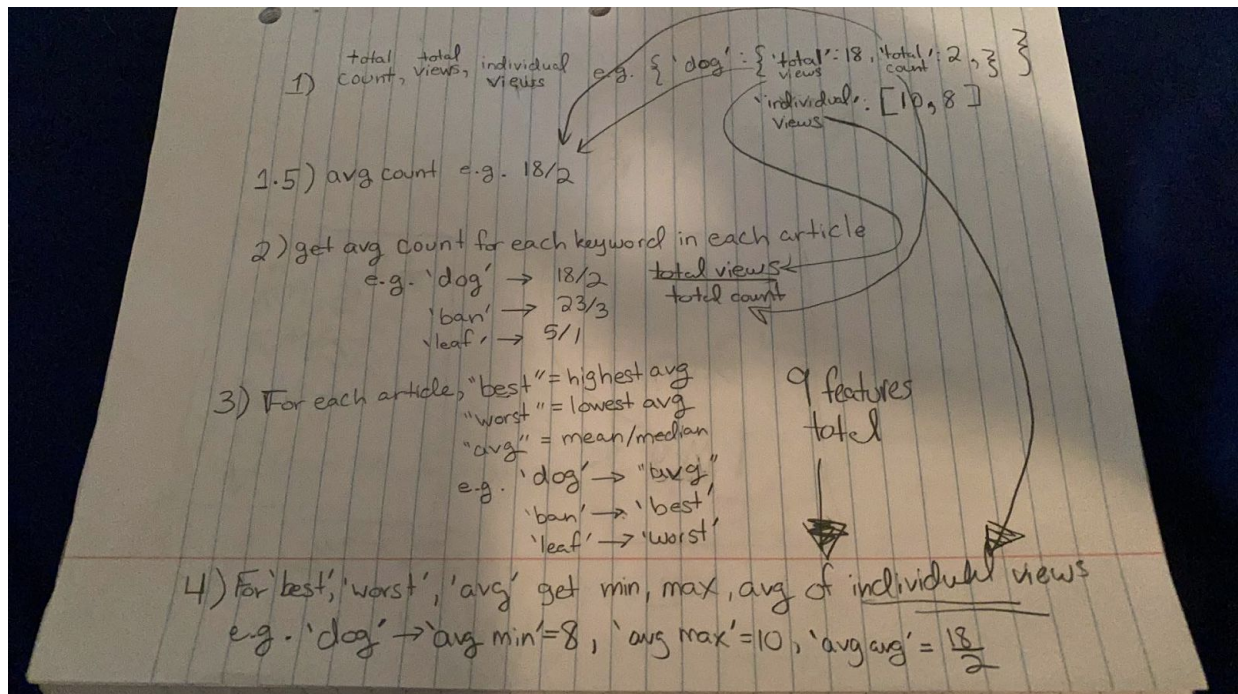 1) total count, total views, individual views e.g. { 'dog': { 'total views': 18, 'total count': 2, } }
'individual views': [10, 8]
1.5) avg count e.g. 18/2
2) get avg count for each keyword in each article
e.g. 'dog' → 18/2
total views
total count
'ban' → 23/3
'leaf' → 5/1
3) For each article, "best" = highest avg
"worst" = lowest avg
"avg" = mean/median
9 features
total
e.g. 'dog' → "avg"
'ban' → 'best'
'leaf' → 'worst'
4) For 'best', 'worst', 'avg' get min, max, avg of individual views
e.g. 'dog' → 'avg min' = 8, 'avg max' = 10, 'avg avg' = 18/2